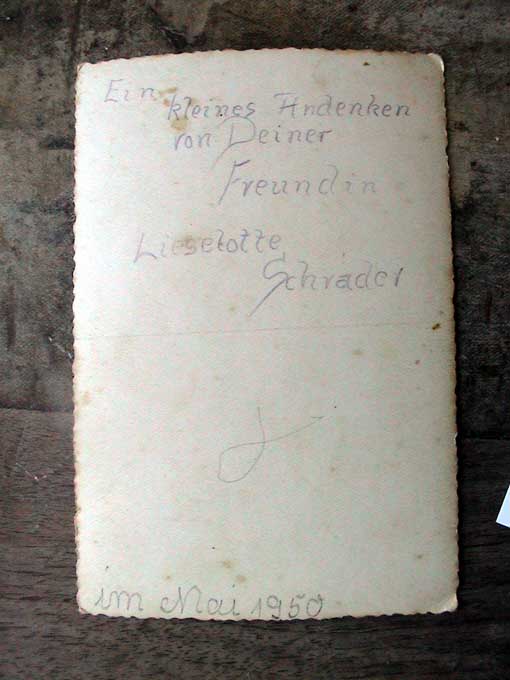 Ein kleines Andenken
von Deiner
Freundin
Lieselotte
Schrader
im Mai 1950